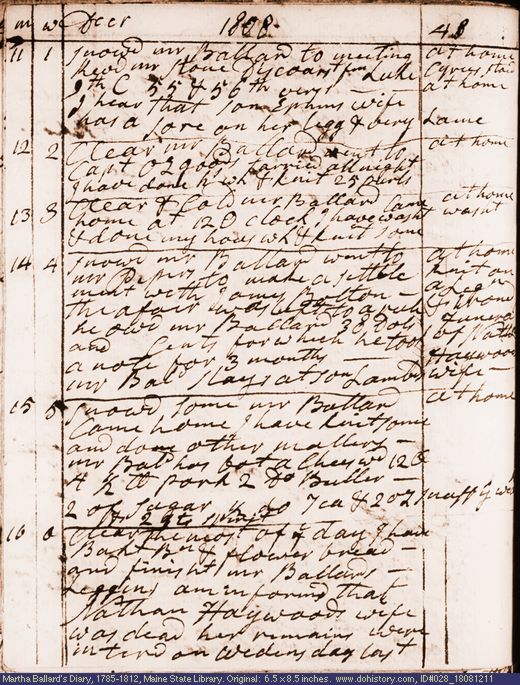 m w Decr 1808 48
11 1 Snowd mr Ballard to meeting at home
heard mr Stone discoarst from Luke Cyrus Staid
9th C 55 & 56th vers at home
I hear that Son Ephms wife
has a Sore on her Leg & very Lame
12 2 Clear mr Ballard went to at home
Capt Ozgoods tarried all night
I have done h wk & knit 25 purls
13 3 Clear & Cold mr Ballard Came at home
home at 12 O Clock I have washt washt
& done my hous wk & knit Some
14 4 Snowd mr Ballard went to at home
mr to make a settle knit on
ment with James
the afair was left to
he owd mr Ballard 30 Dols funeral
and Cents for which he took of Nathn
a note for 3 months Haywoods
mr Bald Stays at Son Lambds wife
15 5 Snowd Some mr Ballard at home
Came home I have knit Some
and done other matters
mr Bald has bot a Chees wd 12
4 ½ lb pork 2 do Butter
2 of Sugar do Tea & 2 oz Snuff
2 qts
16 6 Clear the most of ye day I have
Bakt Bn & flower bread
and finisht mr Ballards
Leggins am informd that
Nathan Haywoods wife
was dead her remains were
interd on wedensday last
Martha Ballard's Diary, 1785-1812, Maine State Library. Original: 6.5 x 8.5 inches. www.dohistory.com, ID#028_18081211